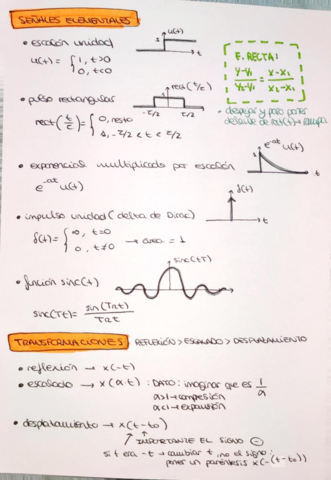 SEÑALES ELEMENTALES
• escalón unidad
u(t) = { 1, t>0
0, t<0
1 u(t)
t
E. RECTA:
y-y₁ / y₂-y₁ = x-x₁ / x₂-x₁
• despejar y para poner
delante de rect(t) → rampa
• pulso rectangular
rect(t/τ) = { 0, resto
1, -τ/2 < t < τ/2
rect(t/τ)
-τ/2 τ/2
• exponencial multiplicada por escalón
e^-at u(t)
e^-at u(t)
t
• impulso unidad (delta de Dirac)
δ(t) = { ∞, t=0
0, t≠0 → área = 1
δ(t)
t
• función sinc(t)
sinc(Tt) = sin(Tπt) / Tπt
sinc(tT)
TRANSFORMACIONES REFLEXIÓN > ESCALADO > DESPLAZAMIENTO
• reflexión → x(-t)
• escalado → x(a·t) : DATO: imaginar que es 1/a
a>1 → compresión
a<1 → expansión
• desplazamiento → x(t-t₀)
IMPORTANTE EL SIGNO -
si t era -t → cambiar t, no el signo:
poner un paréntesis x(-(t-t₀))